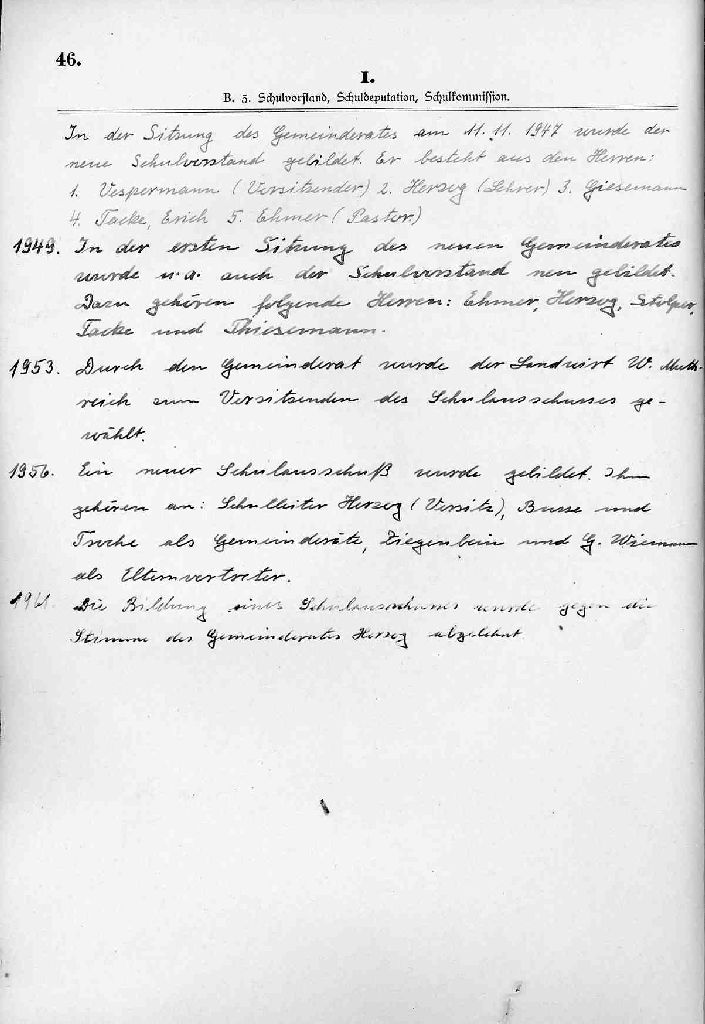 46.
I.
B. 3. Schulvorstand, Schuldeputation, Schulkommission.
In der Sitzung des Gemeinderates am 11. 11. 1947 wurde der
neue Schulvorstand gebildet. Er besteht aus den Herren:
1. Vespermann (Vorsitzender) 2. Herzog (Lehrer) 3. Giesemann
4. Tacke, Erich 5. Ehmer (Pastor)
1949. In der ersten Sitzung des neuen Gemeinderates
wurde u. a. auch der Schulvorstand neu gebildet.
Dazu gehören folgende Herren: Ehmer, Herzog, Stolper,
Tacke und Thiesemann.
1953. Durch den Gemeinderat wurde der Landwirt W. Muth-
reich zum Vorsitzenden des Schulausschusses ge-
wählt.
1956. Ein neuer Schulausschuß wurde gebildet. Ihm
gehören an: Schulleiter Herzog (Vorsitz), Busse und
Troche als Gemeinderäte, Ziegenbein und G. Wiemann
als Elternvertreter.
1961. Die Bildung eines Schulausschusses wurde gegen die
Stimme des Gemeinderates Herzog abgelehnt.